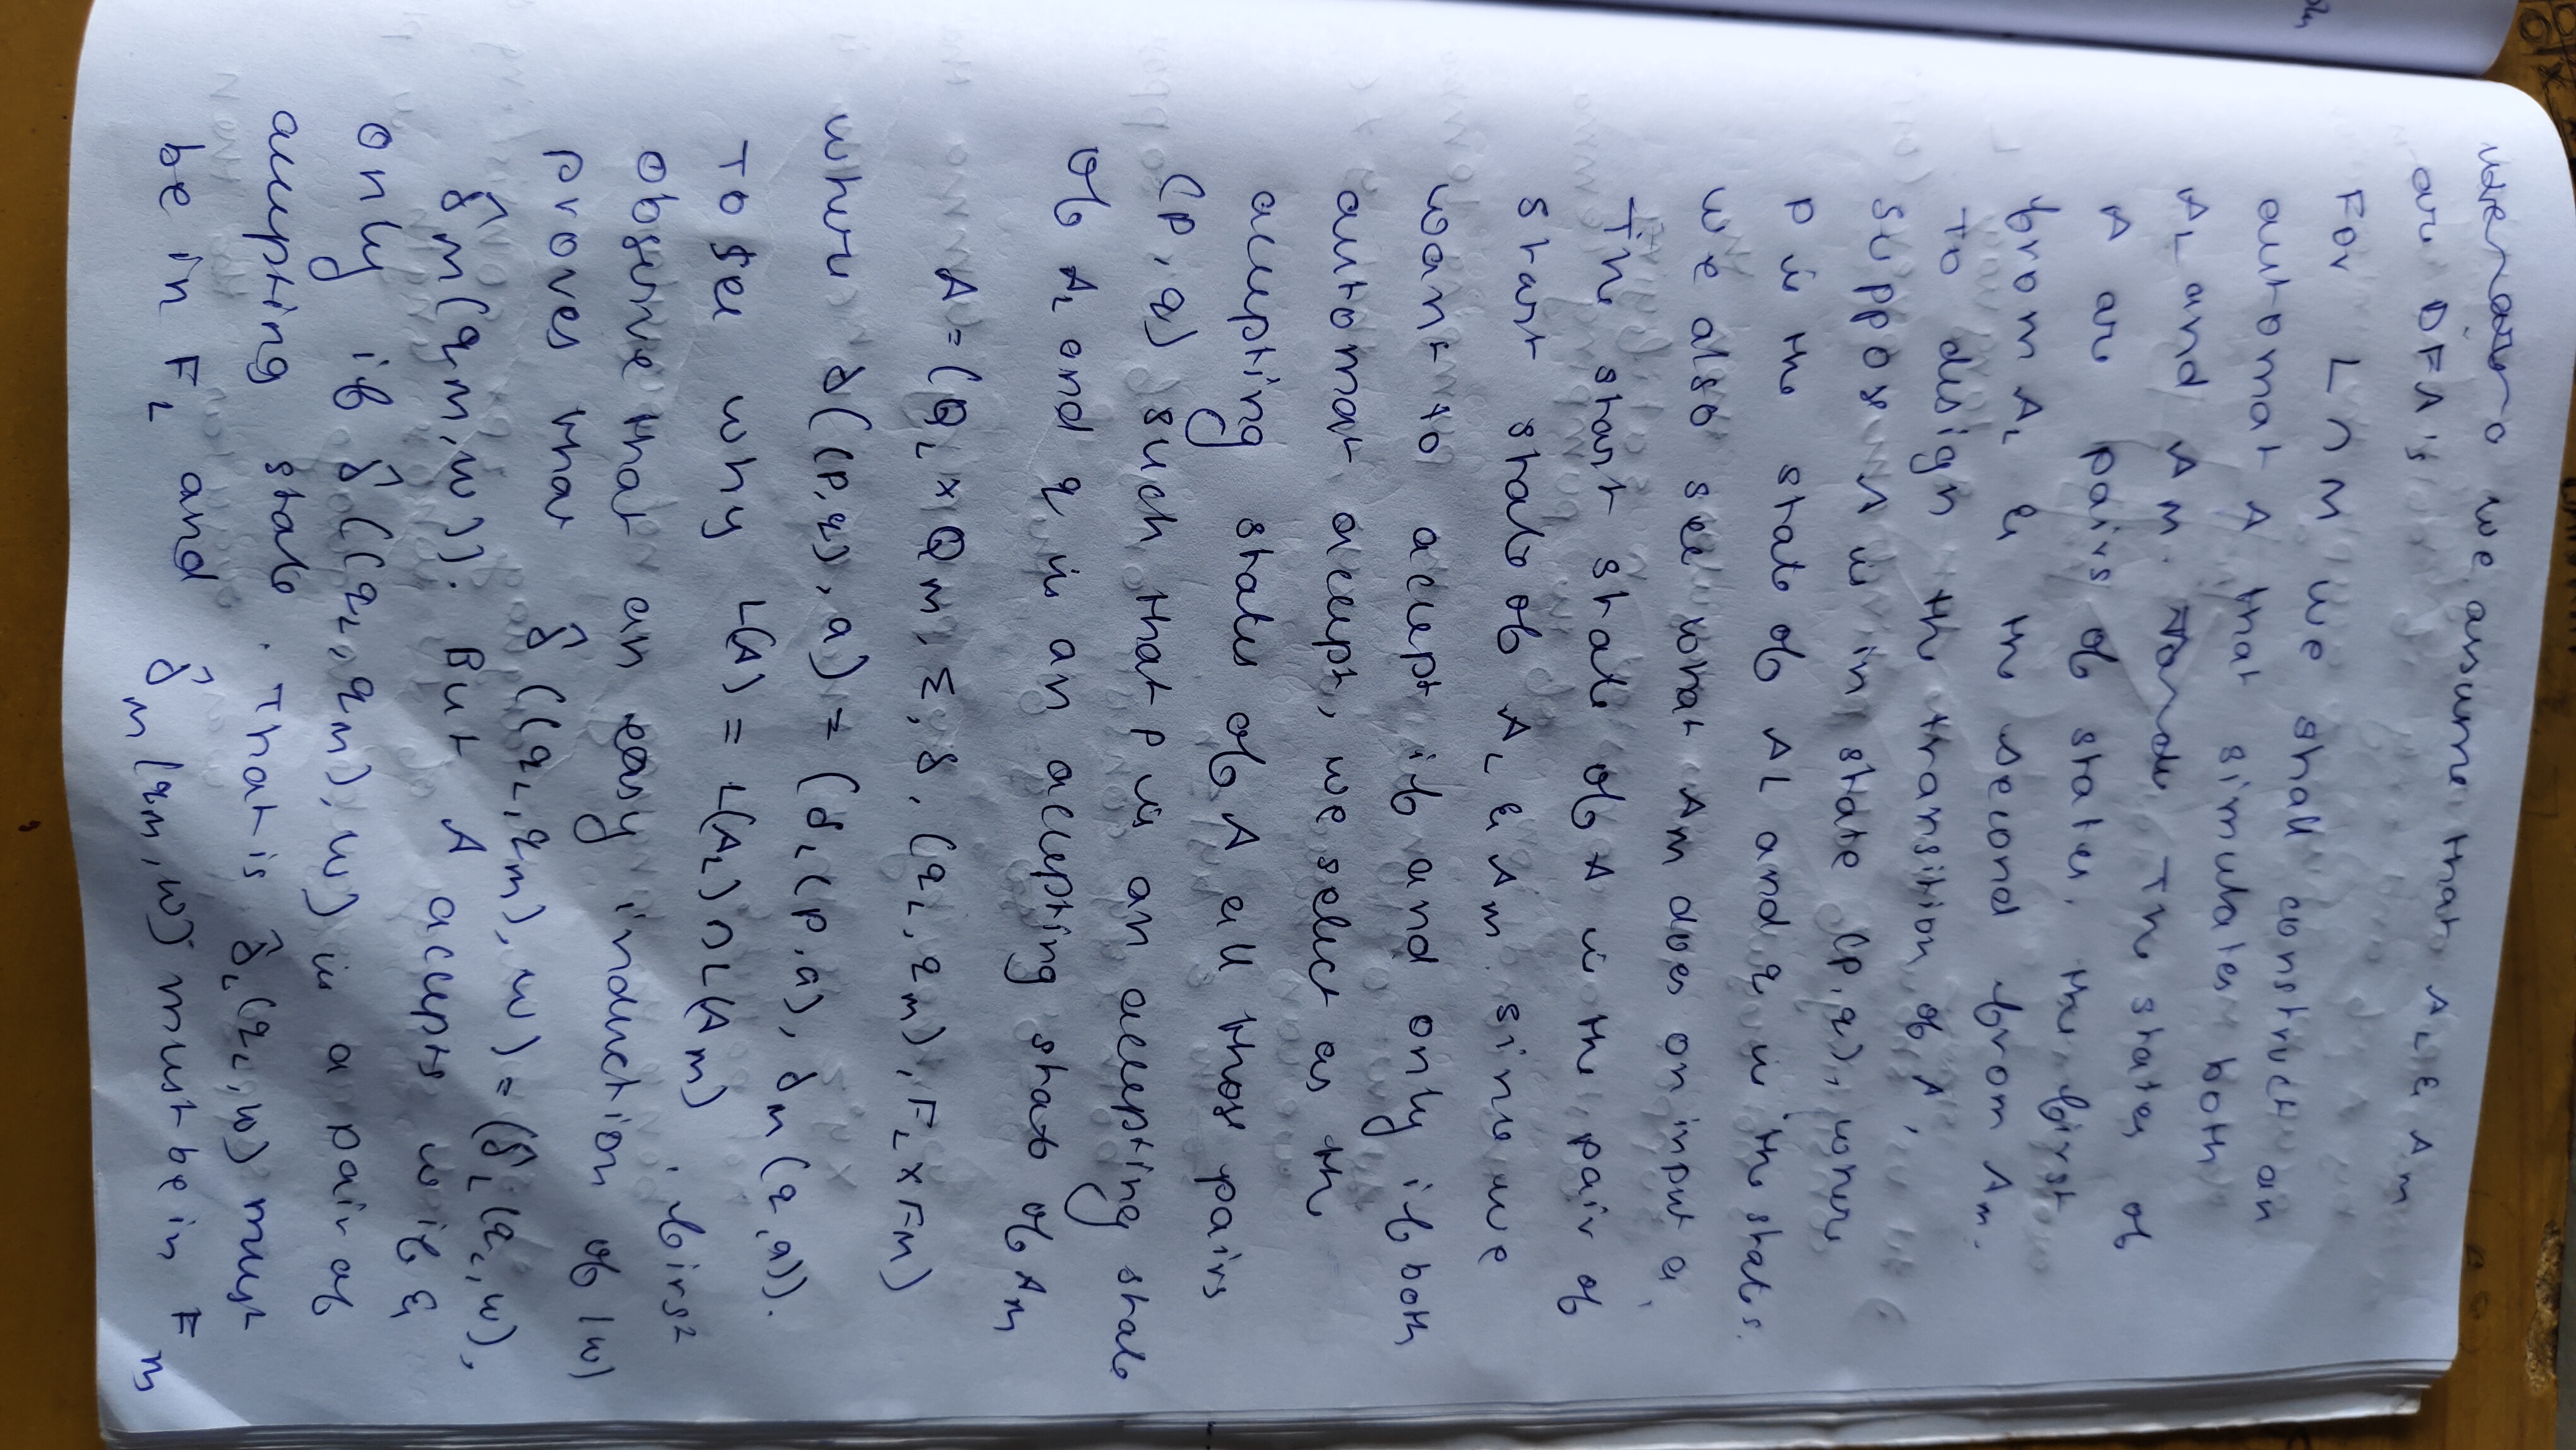 we assume that A_L & A_M
are DFA's
For L ∩ M we shall construct an
automat A that simulates both
A_L and A_M. The states of
A are pairs of states, the first
from A_L & the second from A_M.
To design the transition of A,
suppose A is in state (P, q), where
P is the state of AL and q is the states.
we also see what AM does on input a,
The start state of A is the pair of
start state of A_L & A_M. since we
want to accept if and only if both
automat accept, we select as the
accepting states of A all those pairs
(P, q) such that P is an accepting state
of A_L and q is an accepting state of A_M
A = (Q_L × Q_M, Σ, δ, (q_L, q_M), F_L × F_M)
where δ((P,q), a) = (δ_L(P,a), δ_M(q,a)).
To see why L(A) = L(A_L) ∩ L(A_M), first
observe that an easy induction of |w|
proves that δ̂((q_L, q_M), w) = (δ̂_L(q_L, w),
δ̂_M(q_M, w)). But A accepts w if &
only if δ̂((q_L, q_M), w) is a pair of
accepting state. That is δ̂_L(q_L, w) must
be in F_L and δ̂_M(q_M, w) must be in F_M